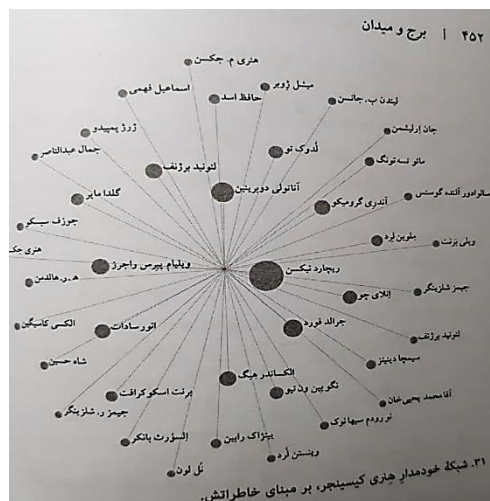 ۴۵۲ | برج و میدان
هنری م. جکسن
میشل ژوبر
اسماعیل فهمی
حافظ اسد
لیندن ب. جانسن
ژرژ پمپیدو
جان اِرلیشمن
جمال عبدالناصر
لئونید برژنف
لُدوک تو
مائو تسه‌تونگ
آناتولی دوبرینین
گلدا مایر
آندرِی گرومیکو
سالوادور آلنده گوسنس
جوزف سیسکو
ملوین لِرد
ویلی برنت
هنری جک
ویلیام پیرس راجرز
ریچارد نیکسن
ه. ر. هالدمن
جیمز شلزینگر
چو اِنلای
الکسی کاسیگین
انور سادات
جرالد فورد
لئونید برژنف
شاه حسین
الکساندر هیگ
سیمچا دینیتز
برنت اسکوکرافت
نگویین ون تیو
آقا محمد یحیی‌خان
جیمز ر. شلزینگر
نورودم سیهانوک
اِلسوُرث بانکر
ییتزاک رابین
وینستن لُرد
لُن نول
۳۱. شبکهٔ خودمدارِ هنری کیسینجر، بر مبنای خاطراتش.